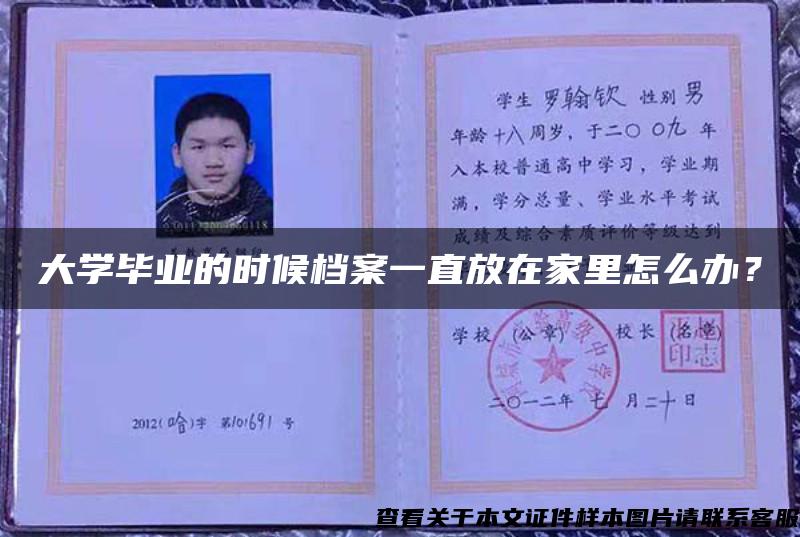 学生 罗翰钦 性别 男
年龄 十八 周岁，于二〇 〇九 年
入本校普通高中学习，学业期
满，学分总量、学业水平考试
成绩及综合素质评价等级达到
大学毕业的时候档案一直放在家里怎么办？
学校 (公章) 校长 (名章)
二〇一二年 七 月二十日
2012(哈)字 第101691 号
查看关于本文证件样本图片请联系客服